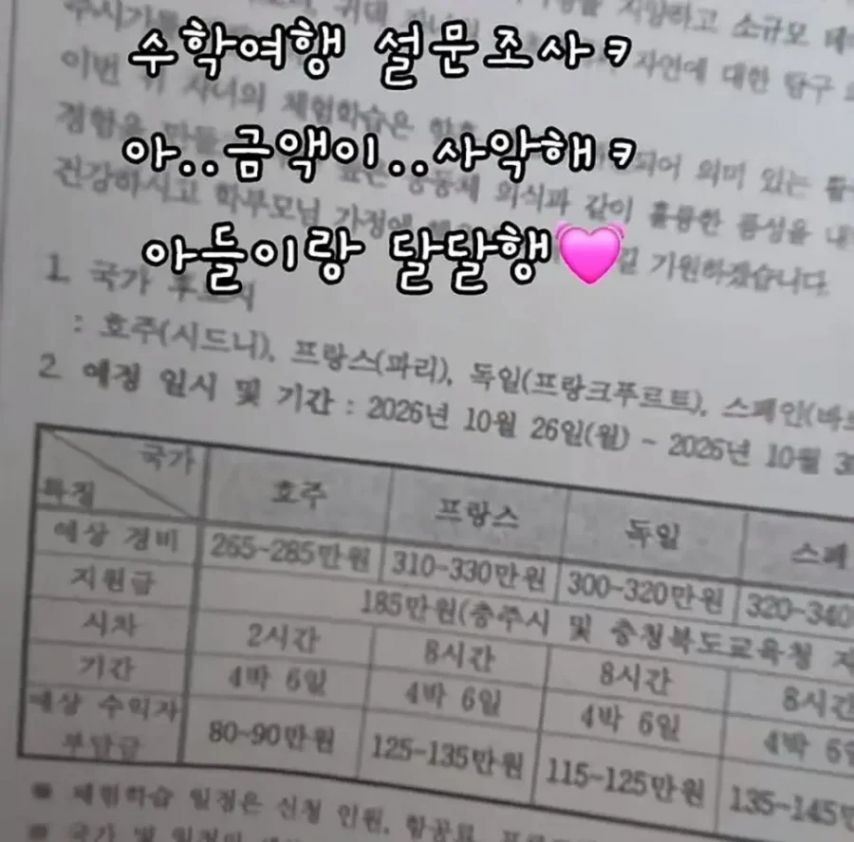 수학여행 설문조사ㅋ
주시기를
지양하고 소규모
자연에 대한 탐구
이번
자녀의 체험학습은
아..금액이..사악해ㅋ
되어 의미 있는
경험을
공동체 의식과 같이 훌륭한 품성을
건강하시고 학부모님 가정에
기원하겠습니다.
아들이랑 달달행💓
1. 국가
: 호주(시드니), 프랑스(파리), 독일(프랑크푸르트), 스페인(바르
2. 예정 일시 및 기간 : 2026년 10월 26일(월) ~ 2026년 10월
국가
특징
호주 프랑스 독일 스페
예상 경비 265~285만원 310~330만원 300~320만원 320~340
지원금 185만원(충주시 및 충청북도교육청 지
시차 2시간 8시간 8시간 8시간
기간 4박 6일 4박 6일 4박 6일 4박 6일
예상 수익자 부담금 80~90만원 125~135만원 115~125만원 135~145만
체험학습 일정은 신청 인원, 항공료,
국가 및